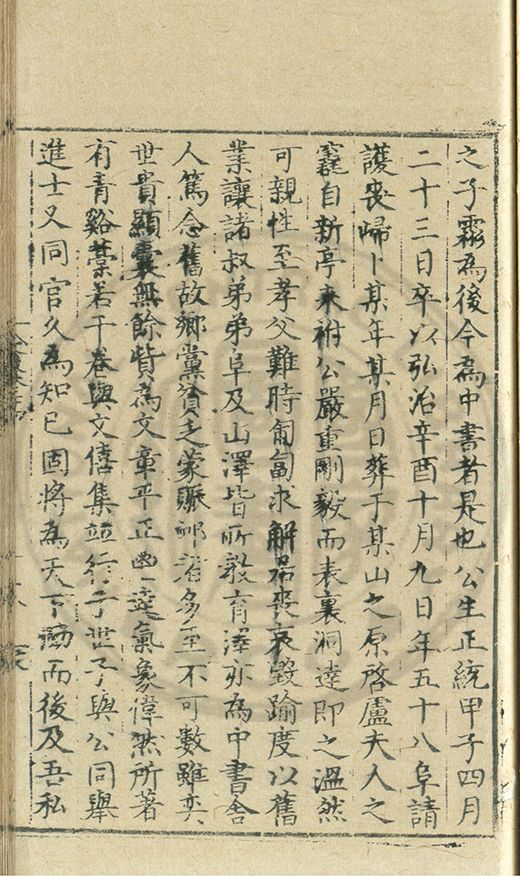 之子霖為後今為中書者是也公生正統甲子四月
二十三日卒以弘治辛酉十月九日年五十八阜請
護喪歸卜某年某月日葬于某山之原啓盧夫人之
竁自新亭来祔公嚴重剛毅而表裏洞達即之溫然
可親性至孝父難時匍匐求解居喪哀毀踰度以舊
業讓諸叔弟弟阜及山澤皆所教育澤亦為中書舍
人篤念舊故鄉黨貧乏蒙賑䘏者多至不可數雖奕
世貴顯囊無餘貲為文章平正幽逺氣象偉然所著
有青谿藁若干卷與文僖集並行于世予與公同舉
進士又同官久為知已固將為天下慟而後及吾私